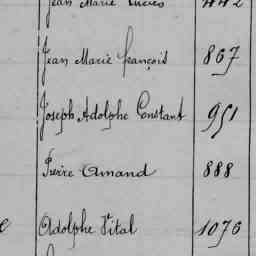 Jean Marie Lucien 442
Jean Marie françois 867
Joseph Adolphe Constant 951
Pierre Amand 888
Adolphe Vital 1076